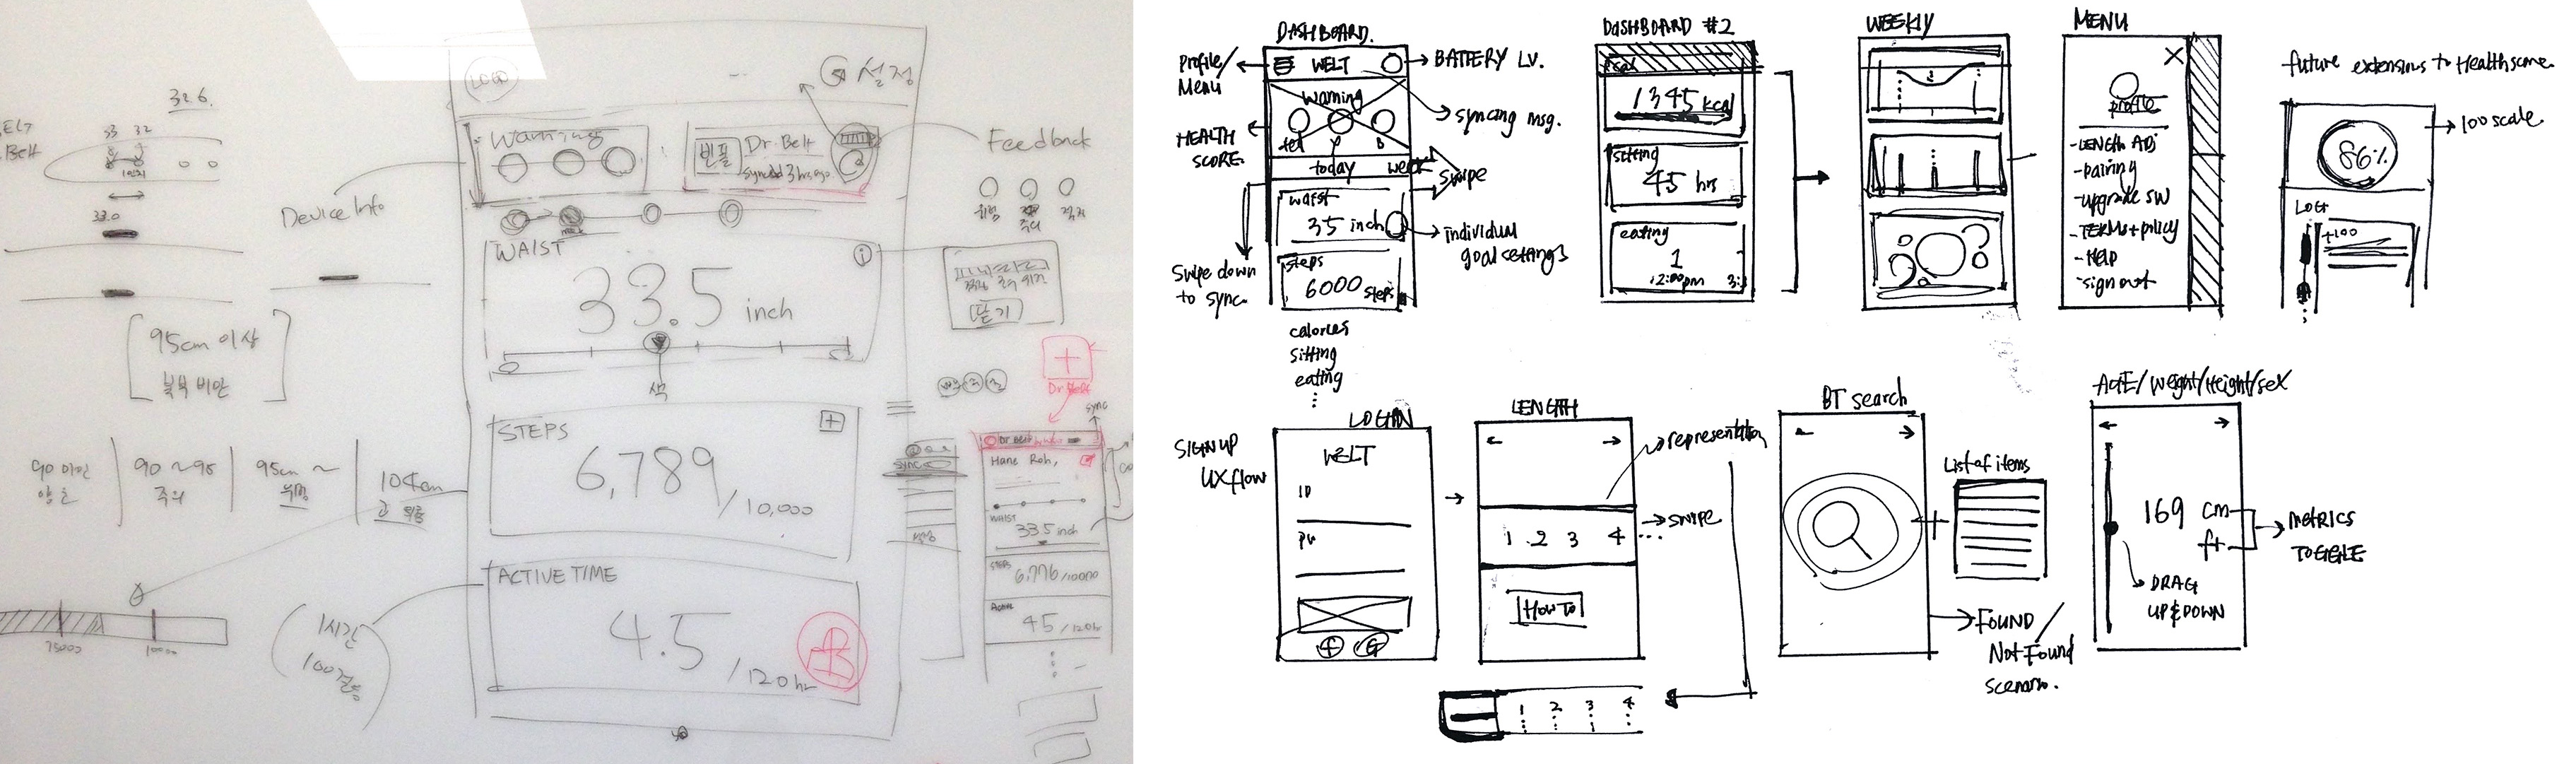 LOGO
설정
32.6.
Belt
33 32
33.0
Warning
빈폴
Dr. Belt
Synced 3 hrs ago
Feedback
Device Info
WAIST
33.5 inch
95cm 이상
복부 비만
STEPS
6,789 / 10,000
90 미만
90 ~ 95
주의
95cm ~
위험
104cm
ACTIVE TIME
4.5 / 120hr
1시간
(닫기)
Dr. Belt
sync
sync
WAIST
33.5 inch
STEPS
6,776 / 10000
Active
45 / 120hr
DASHBOARD.
Profile/
Menu
WELT
BATTERY LV.
Warning
syncing msg.
HEALTH
SCORE.
today
week
Swipe
waist
35 inch
individual
goal settings
steps
6000 steps
Swipe down
to sync.
calories
sitting
eating
DASHBOARD #2
1345 kcal
sitting
45 hrs
eating
1
12:00pm
WEEKLY
MENU
X
profile
-LENGTH ADJ
-pairing
-upgrade SW
-TERMS+policy
-HELP
-sign out
future extensions to Healthscore
86%
100 scale
LOG
+100
SIGN UP
UX flow
LOGIN
WELT
ID
PW
LENGTH
representation
1 2 3 4 ...
swipe
How To
1 2 3 4
BT search
List of items
FOUND /
Not Found
scenario.
AGE/Weight/Height/sex
169 cm
ft
METRICS
TOGGLE
DRAG
UP&DOWN